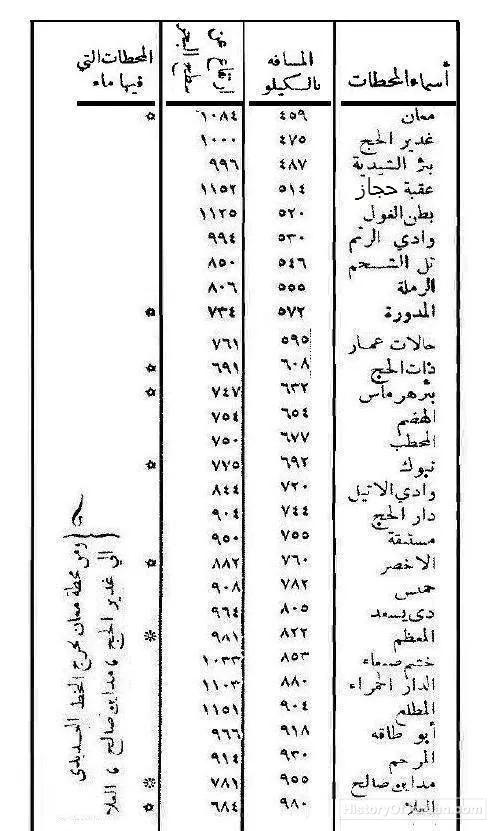 أسماء المحطات المسافه بالكيلو ارتفاع عن سطح البحر المحطات التي فيها ماء
معان ٤٥٩ ١٠٨٤ *
غدير الحج ٤٧٥ ١٠٠٠
بئر الشيدية ٤٨٧ ٩٩٦
عقبة حجاز ٥١٤ ١١٥٢
بطن الغول ٥٢٠ ١١٢٥
وادي الرتم ٥٣٠ ٩٩٤
تل الشحم ٥٤٦ ٨٥٠
الرملة ٥٥٥ ٨٠٦
المدورة ٥٧٢ ٧٣٤ *
حالات عمار ٥٩٥ ٧٦١
ذات الحج ٦٠٨ ٦٩١ *
بئر هرماس ٦٣٢ ٧٤٧ *
الهضم ٦٥٤ ٧٥٤
المحطب ٦٧٧ ٧٥٠
تبوك ٦٩٢ ٧٧٥ *
وادي الاتيل ٧٢٠ ٨٤٤
دار الحج ٧٤٤ ٩٠٤
مستبقة ٧٥٥ ٩٥٠
الاخضر ٧٦٠ ٨٨٢ *
خمس ٧٨٢ ٩٠٨
دي سعد ٨٠٥ ٩٦٤
المعظم ٨٢٢ ٩٨١ *
خشم صنعاء ٨٥٣ ١٠٣٣
الدار الحمراء ٨٨٠ ١١٠٣
المطلع ٩٠٤ ١١٥١
أبو طاقه ٩١٨ ٩٦٦
المرحم ٩٣٠ ٩١٤
مداين صالح ٩٥٥ ٧٨١ *
العلا ٩٨٠ ٦٨٤ *
ومن محطة معان يخرج الخط الحديدى
الي غدير الحج ٦ مداين صالح ٦ العلا